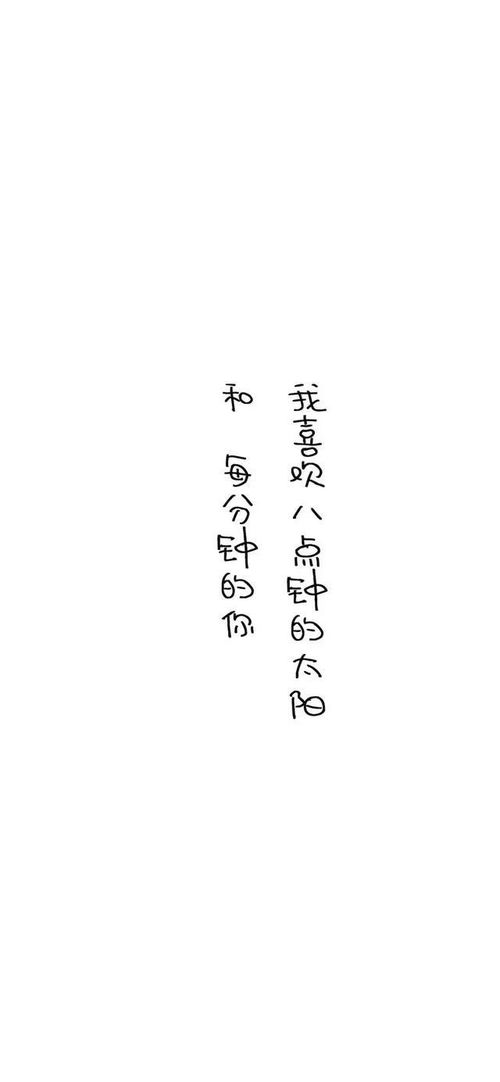 我喜欢八点钟的太阳
和 每分钟的你